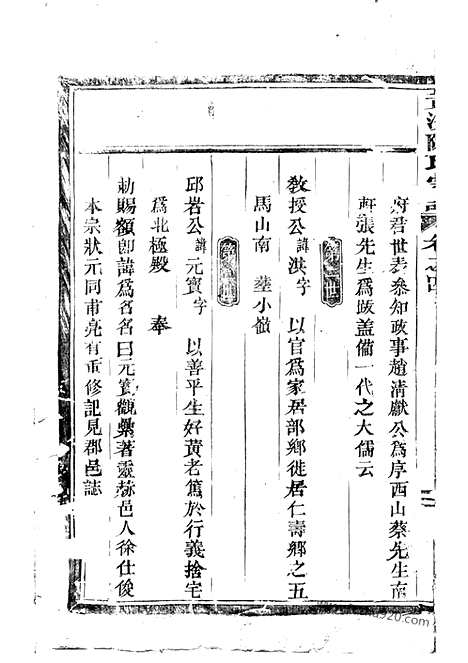 卷之四
府君世表叅知政事趙淸獻公爲序西山蔡先生南
軒張先生爲跋蓋備一代之大儒云
敎授公諱淇字　以官爲家居部鄉徙居仁壽鄉之五
馬山南　塋小嶺
邱岩公諱元寳字　以善平生好黃老篤於行義捨宅
爲北極殿　奉
勅賜額卽諱爲名名曰元寳觀㮣著靈赫邑人徐仕俊
本宗狀元同甫亮有重修記見郡邑誌
www.jiapu920.com